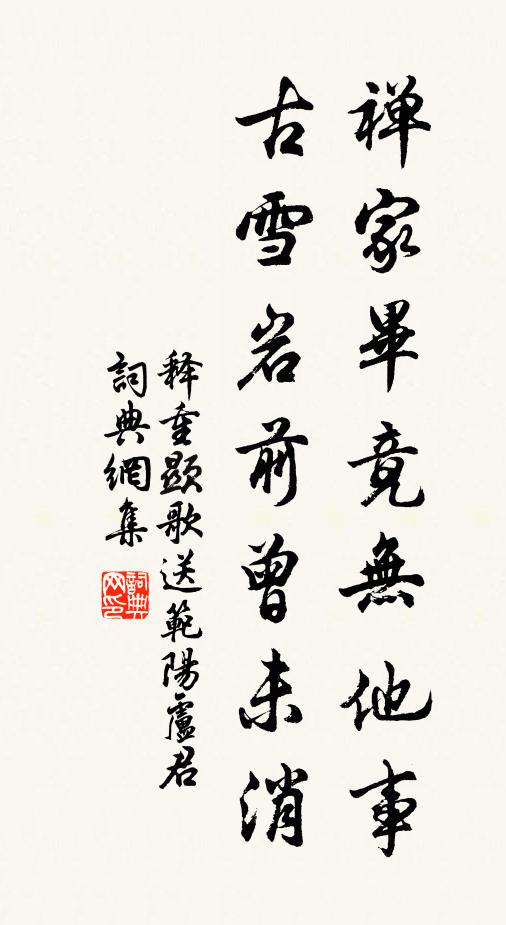 禅家畢竟無他事
古雪岩前曾未消
释重顯歌送範陽盧君
詞典網集
詞典网印